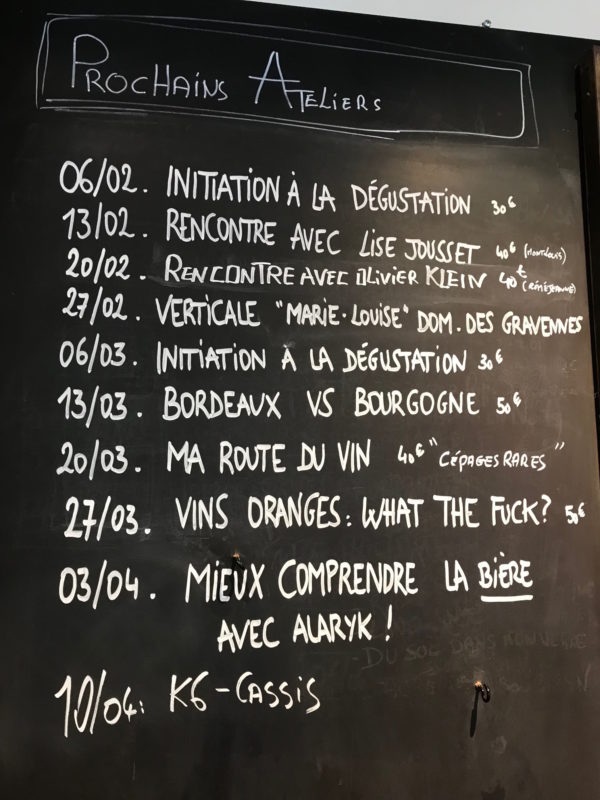 PROCHAINS ATELIERS
06/02. INITIATION À LA DÉGUSTATION 30€
13/02. RENCONTRE AVEC LISE JOUSSET 40€ (MONTLOUIS)
20/02. RENCONTRE AVEC OLIVIER KLEIN 40€ (RÉMÉJEANNE)
27/02. VERTICALE "MARIE-LOUISE" DOM. DES GRAVENNES
06/03. INITIATION A LA DÉGUSTATION 30€
13/03. BORDEAUX VS BOURGOGNE 50€
20/03. MA ROUTE DU VIN 40€ "CÉPAGES RARES"
27/03. VINS ORANGES: WHAT THE FUCK? 50€
03/04. MIEUX COMPRENDRE LA BIÈRE
AVEC ALARYK !
DU SOL DANS MON VERRE
10/04: K6-CASSIS